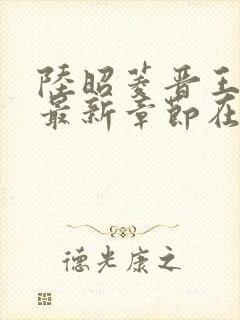 陸昭菱晋王
最新章節在
德光康之